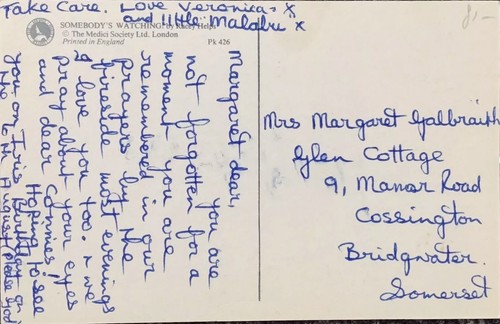 Take Care. Love Veronica x
and little Malabu x
SOMEBODY'S WATCHING, by Racey Helps
© The Medici Society Ltd. London
Printed in England
Pk 426
8/-
Margaret dear,
you are
not forgotten for a
moment you are
remembered in our
prayers by the
fireside most evenings
I love you too. + we
pray about your eyes
and dear Connies!
Hoping to see
you on Iris Birthday on
the 10th August (please God)
Mrs Margaret Galbraith
Glen Cottage
9, Manor Road
Cossington
Bridgwater.
Somerset